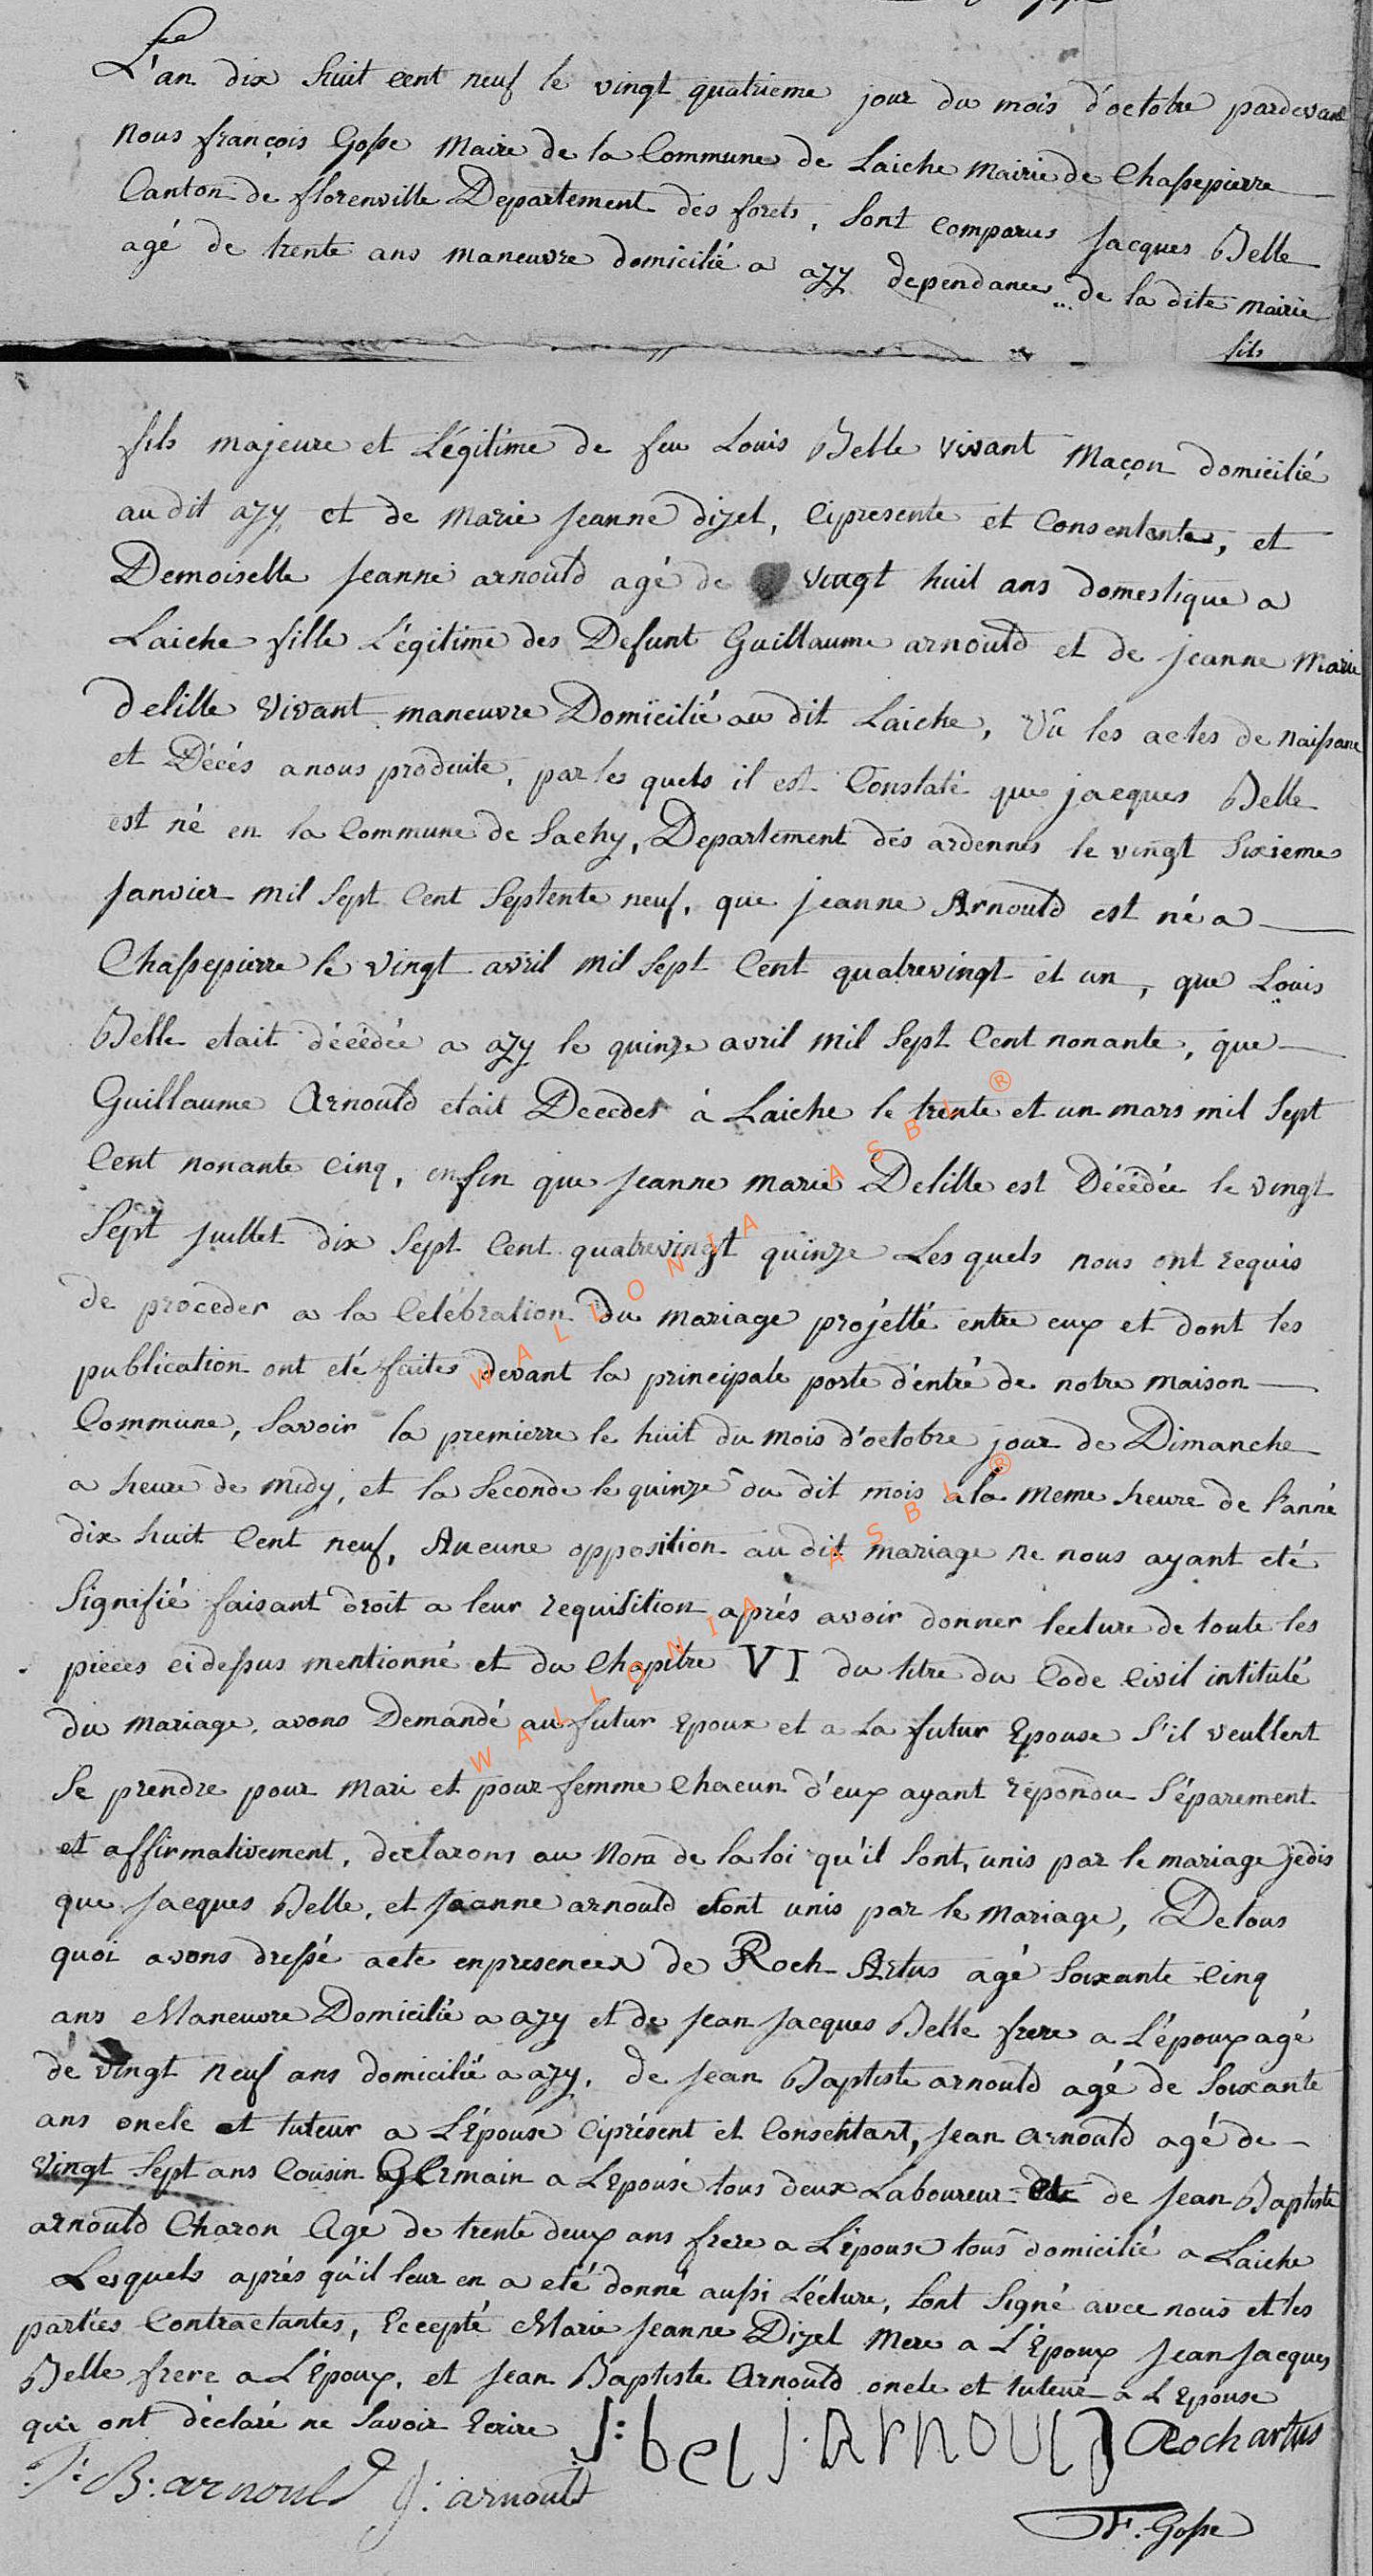 L'an dix huit cent neuf le vingt quatrieme jour du mois d'octobre pardevant
nous françois Gosse Maire de la Commune de Laiche Mairie de Chassepierre
Canton de florenville Departement des forets, Sont comparus Jacques Belle
agé de trente ans maneuvre domicilié a azy dependance de la dite mairie
fils
fils majeure et Légitime de feu Louis Belle vivant Maçon domicilié
au dit azy, et de Marie Jeanne dizel, Cipresente et Consentante, et
Demoiselle Jeanne arnould agé de vingt huit ans domestique a
Laiche fille Légitime des Defunt Guillaume arnould et de jeanne Marie
delille Vivant maneuvre Domicilié au dit Laiche, Vû les actes de naissance
et Décés a nous produite, par les quels il est Constaté que jacques Belle
est né en la Commune de Sachy, Departement des ardennes le vingt Sixieme
Janvier mil Sept Cent Septente neuf, que jeanne Arnould est né a
Chassepierre le vingt avril mil Sept Cent quatrevingt et un, que Louis
Belle etait décédée a azy le quinze avril mil Sept Cent nonante, que
Guillaume Arnould etait Decedes à Laiche le trente et un mars mil Sept
Cent nonante cinq, enfin que Jeanne marie Delille est Décédée le vingt
Sept Juillet dix Sept Cent quatrevingt quinze Les quels nous ont requis
de proceder a la Celébration du mariage projétté entre eux et dont les
publication ont eté faites devant la principale porte d'éntré de notre maison
Commune, Savoir la premierre le huit du mois d'octobre jour de Dimanche
a heure de midy, et la Seconde le quinze du dit mois a la meme heure de l'anné
dix huit Cent neuf, Aucune opposition au dit mariage ne nous ayant eté
Signifié faisant droit a leur requisition aprés avoir donner lecture de toute les
pieces cidessus mentionné et du Chapitre VI du titre du Code Civil intitulé
du Mariage, avons Demandé au futur Epoux et a La futur Epouse S'il veullent
Se prendre pour Mari et pour femme Chacun d'eux ayant répondu Séparement
et affirmativement, declarons au Nom de la loi qu'il Sont, unis par le mariage jedis
que Jacques Belle, et Jeanne arnould Sont unis par le Mariage, De tous
quoi avons dressé acte en presences de Roch Artus agé Soixante Cinq
ans Maneuvre Domicilié a azy et de Jean Jacques Belle frere a L'époux agé
de vingt neuf ans domicilié a azy, de Jean Baptiste arnould agé de Soixante
ans oncle et tuteur a L'Epouse Ciprésent et Consentant, Jean arnould agé de
vingt Sept ans Cousin Germain a Lepouse tous deux Laboureur de Jean Baptiste
arnould Charon Agé de trente deux ans frere a L'épouse tous domicilié a Laiche
Lesquels aprés qu'il leur en a eté donné aussi Lécture, Sont Signé avec nous et les
parties Contractantes, Ecepté Marie Jeanne Dizel Mere a L'Epoux Jean Jacques
Belle frere a L'Epoux, et Jean Baptiste Arnould oncle et tuteur a L'Epouse
qui ont déclaré ne Savoir Ecrire J: bel J. ARNOULD Roch artus
J: B: arnould J: arnould
F. Gosse
WALLONIA ASBL ®
WALLONIA ASBL ®